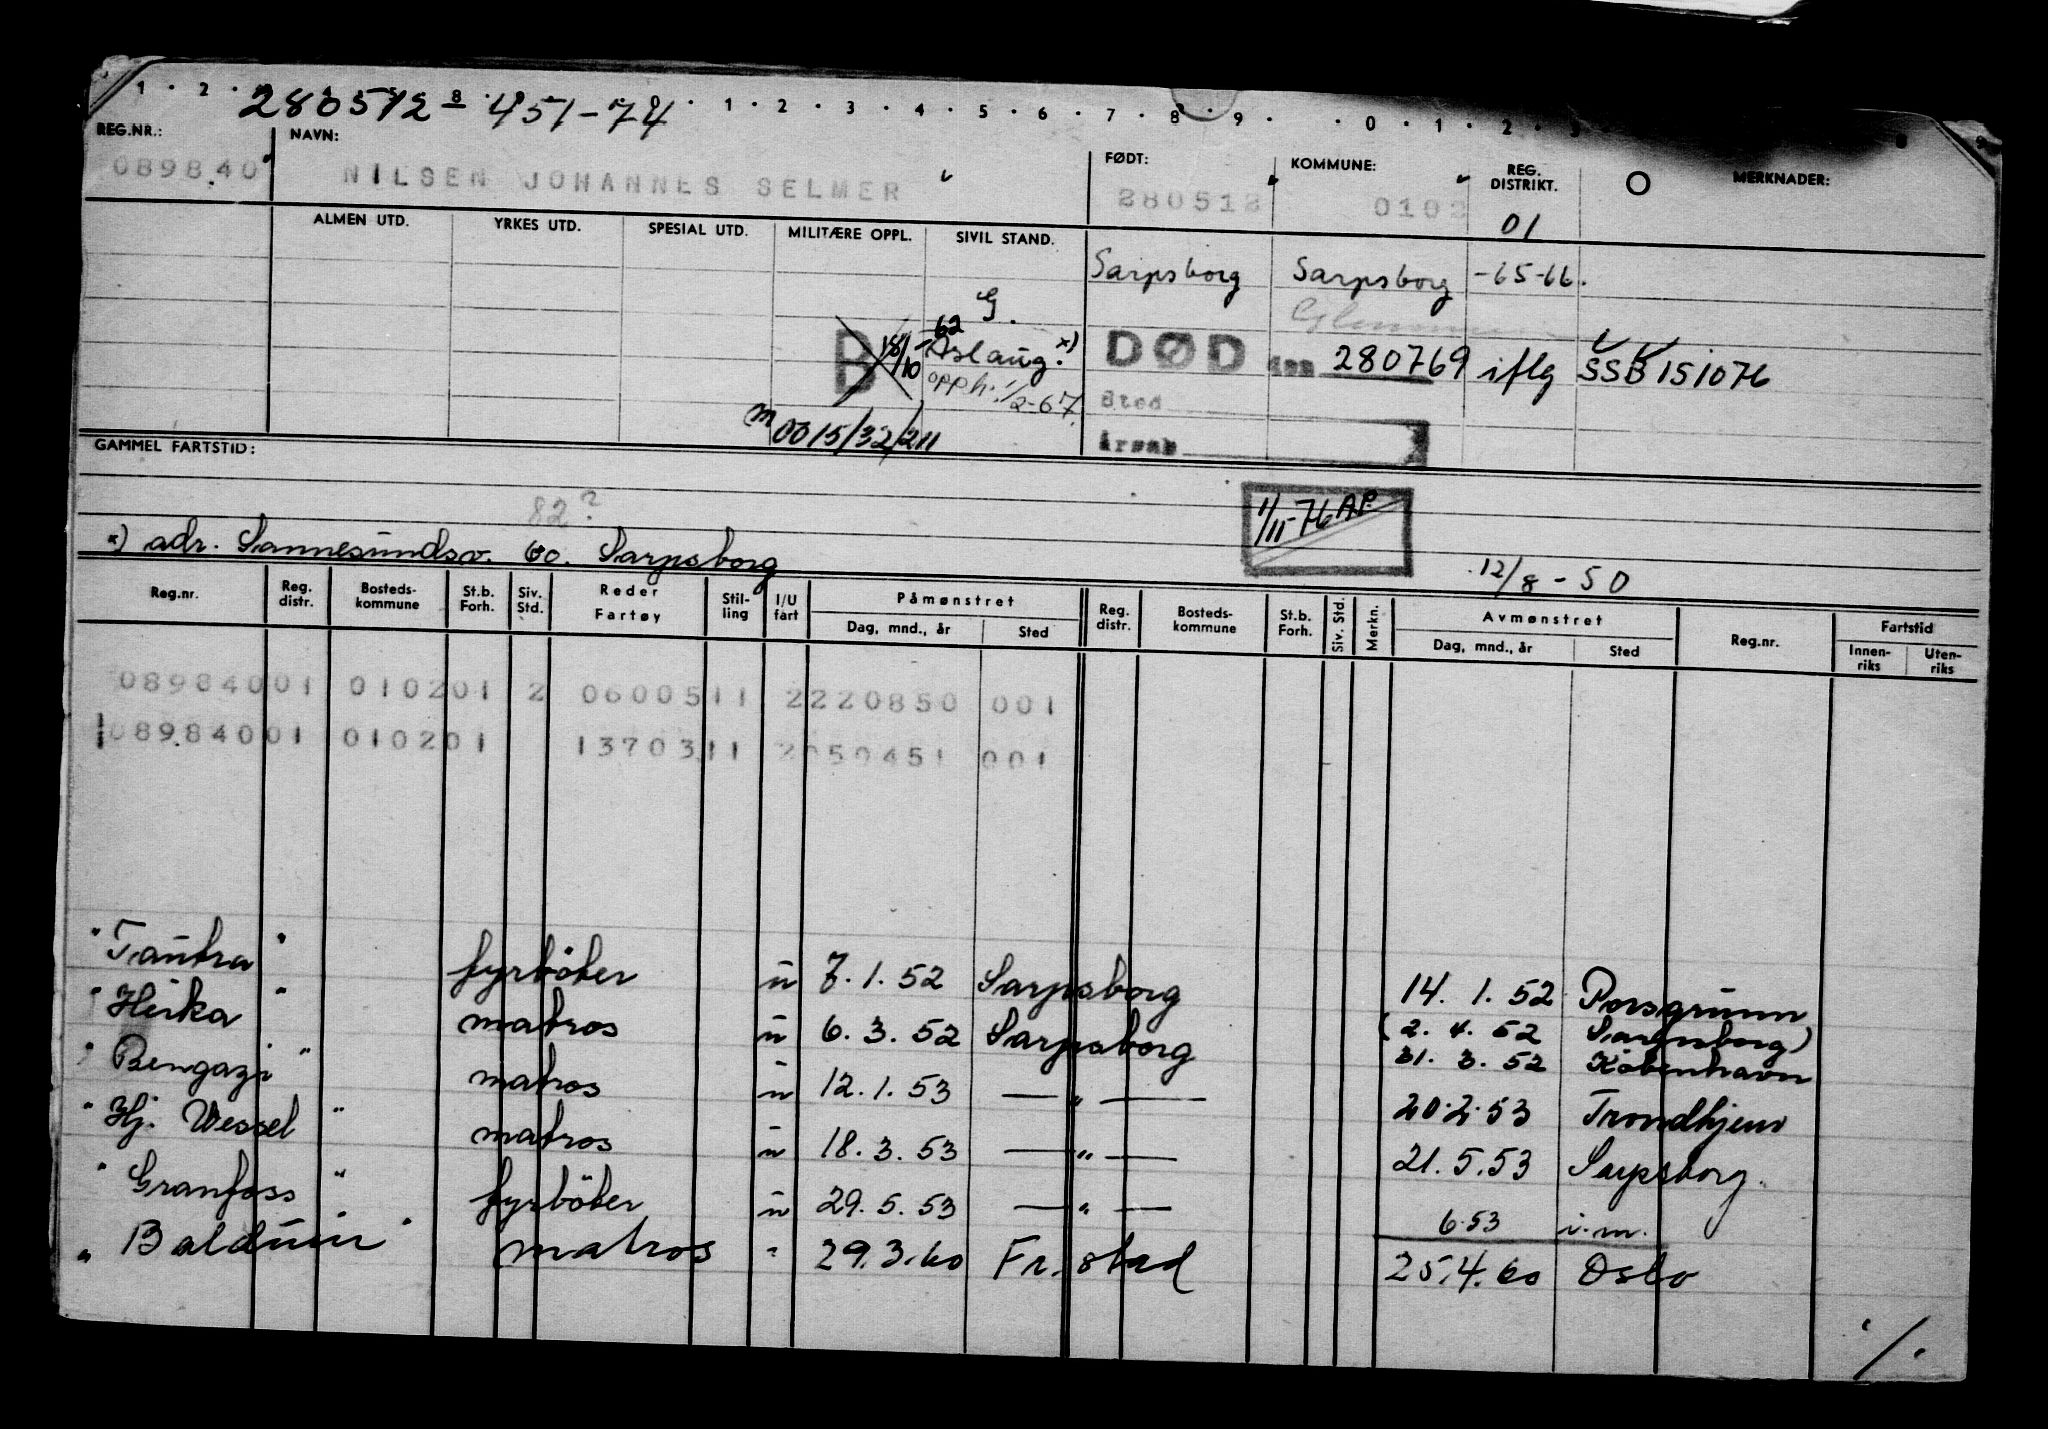 280512 - 451-74
REG.NR.: NAVN: FØDT: KOMMUNE: REG. DISTRIKT. MERKNADER:
089840 NILSEN JOHANNES SELMER 280512 0102 01
ALMEN UTD. YRKES UTD. SPESIAL UTD. MILITÆRE OPPL. SIVIL STAND.
Sarpsborg Sarpsborg -65-66.
G.
B 18/10 -62 Aslaug. x) DØD den 280769 iflg SSB 151076
opph. 1/2-67. Sted
m 0015/32/211 årsak
GAMMEL FARTSTID:
82? 1/11-76 AP.
x) adr. Sannesundsv. 60. Sarpsborg
12/8 - 50
Reg.nr. Reg. distr. Bosteds- kommune St.b. Forh. Siv. Std. Reder Fartøy Stil- ling I/U fart Påmønstret Dag, mnd., år Sted Reg. distr. Bosteds- kommune St.b. Forh. Siv. Std. Merkn. Avmønstret Dag, mnd., år Sted Reg.nr. Fartstid Innen- riks Uten- riks
08984001 010201 2 0600511 2220850 001
08984001 010201 1370311 2050451 001
"Tautra" fyrböter u 7. 1. 52 Sarpsborg 14. 1. 52 Porsgrunn
"Heika" matros u 6. 3. 52 Sarpsborg (2. 4. 52 Sarpsborg)
31. 3. 52 København
"Bengazi" matros u 12. 1. 53 — " — 20.2.53 Trondhjem
"Hj. Wessel" matros u 18. 3. 53 — " — 21. 5. 53 Sarpsborg.
"Granfoss" fyrböter u 29. 5. 53 — " — 6.53 i.m.
"Balduin" matros " 29.3.60 Fr.stad 25.4.60 Oslo
./.